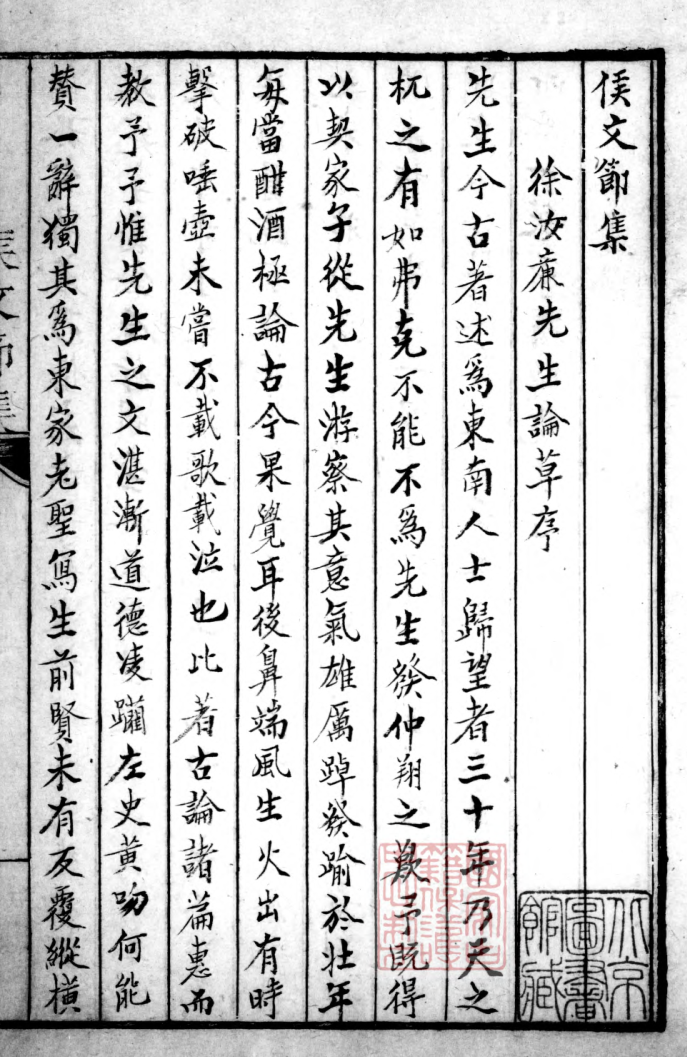 侯文節集
徐汝廉先生論草序
先生今古著述爲東南人士歸望者三十年乃天之
杌之有如弗克不能不爲先生發仲翔之歎予既得
以契家子從先生游察其意氣雄厲踔發踰於壯年
每當酣酒極論古今果覺耳後鼻端風生火出有時
擊破唾壺未嘗不載歌載泣也比著古論諸篇惠而
教予予惟先生之文湛漸道德凌躪左史黄吻何能
贊一辭獨其爲東家老聖寫生前賢未有反覆縱横
北京
圖書
館藏